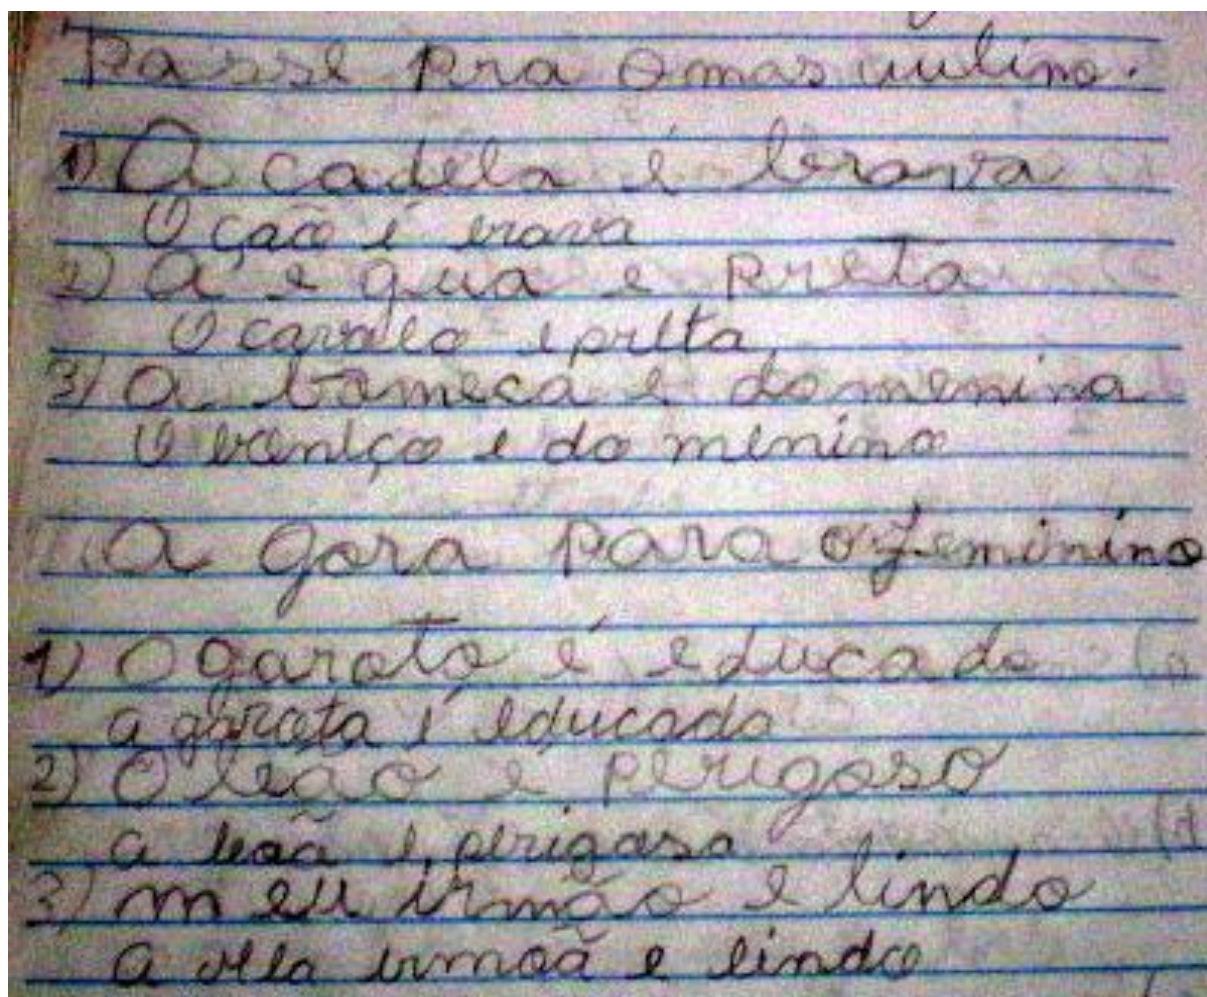 Passe pra o masculino.
1) A cadela é brava
O ção é brava
2) A egua e preta
O cavalo e preta
3) A boneca é do menina
O boneço e do menino
A gora para o feminino
1) O garoto é educado
a garota é educada
2) O leão e perigoso
a leoã e perigosa
3) meu irmão e lindo
a irmoã e lindo